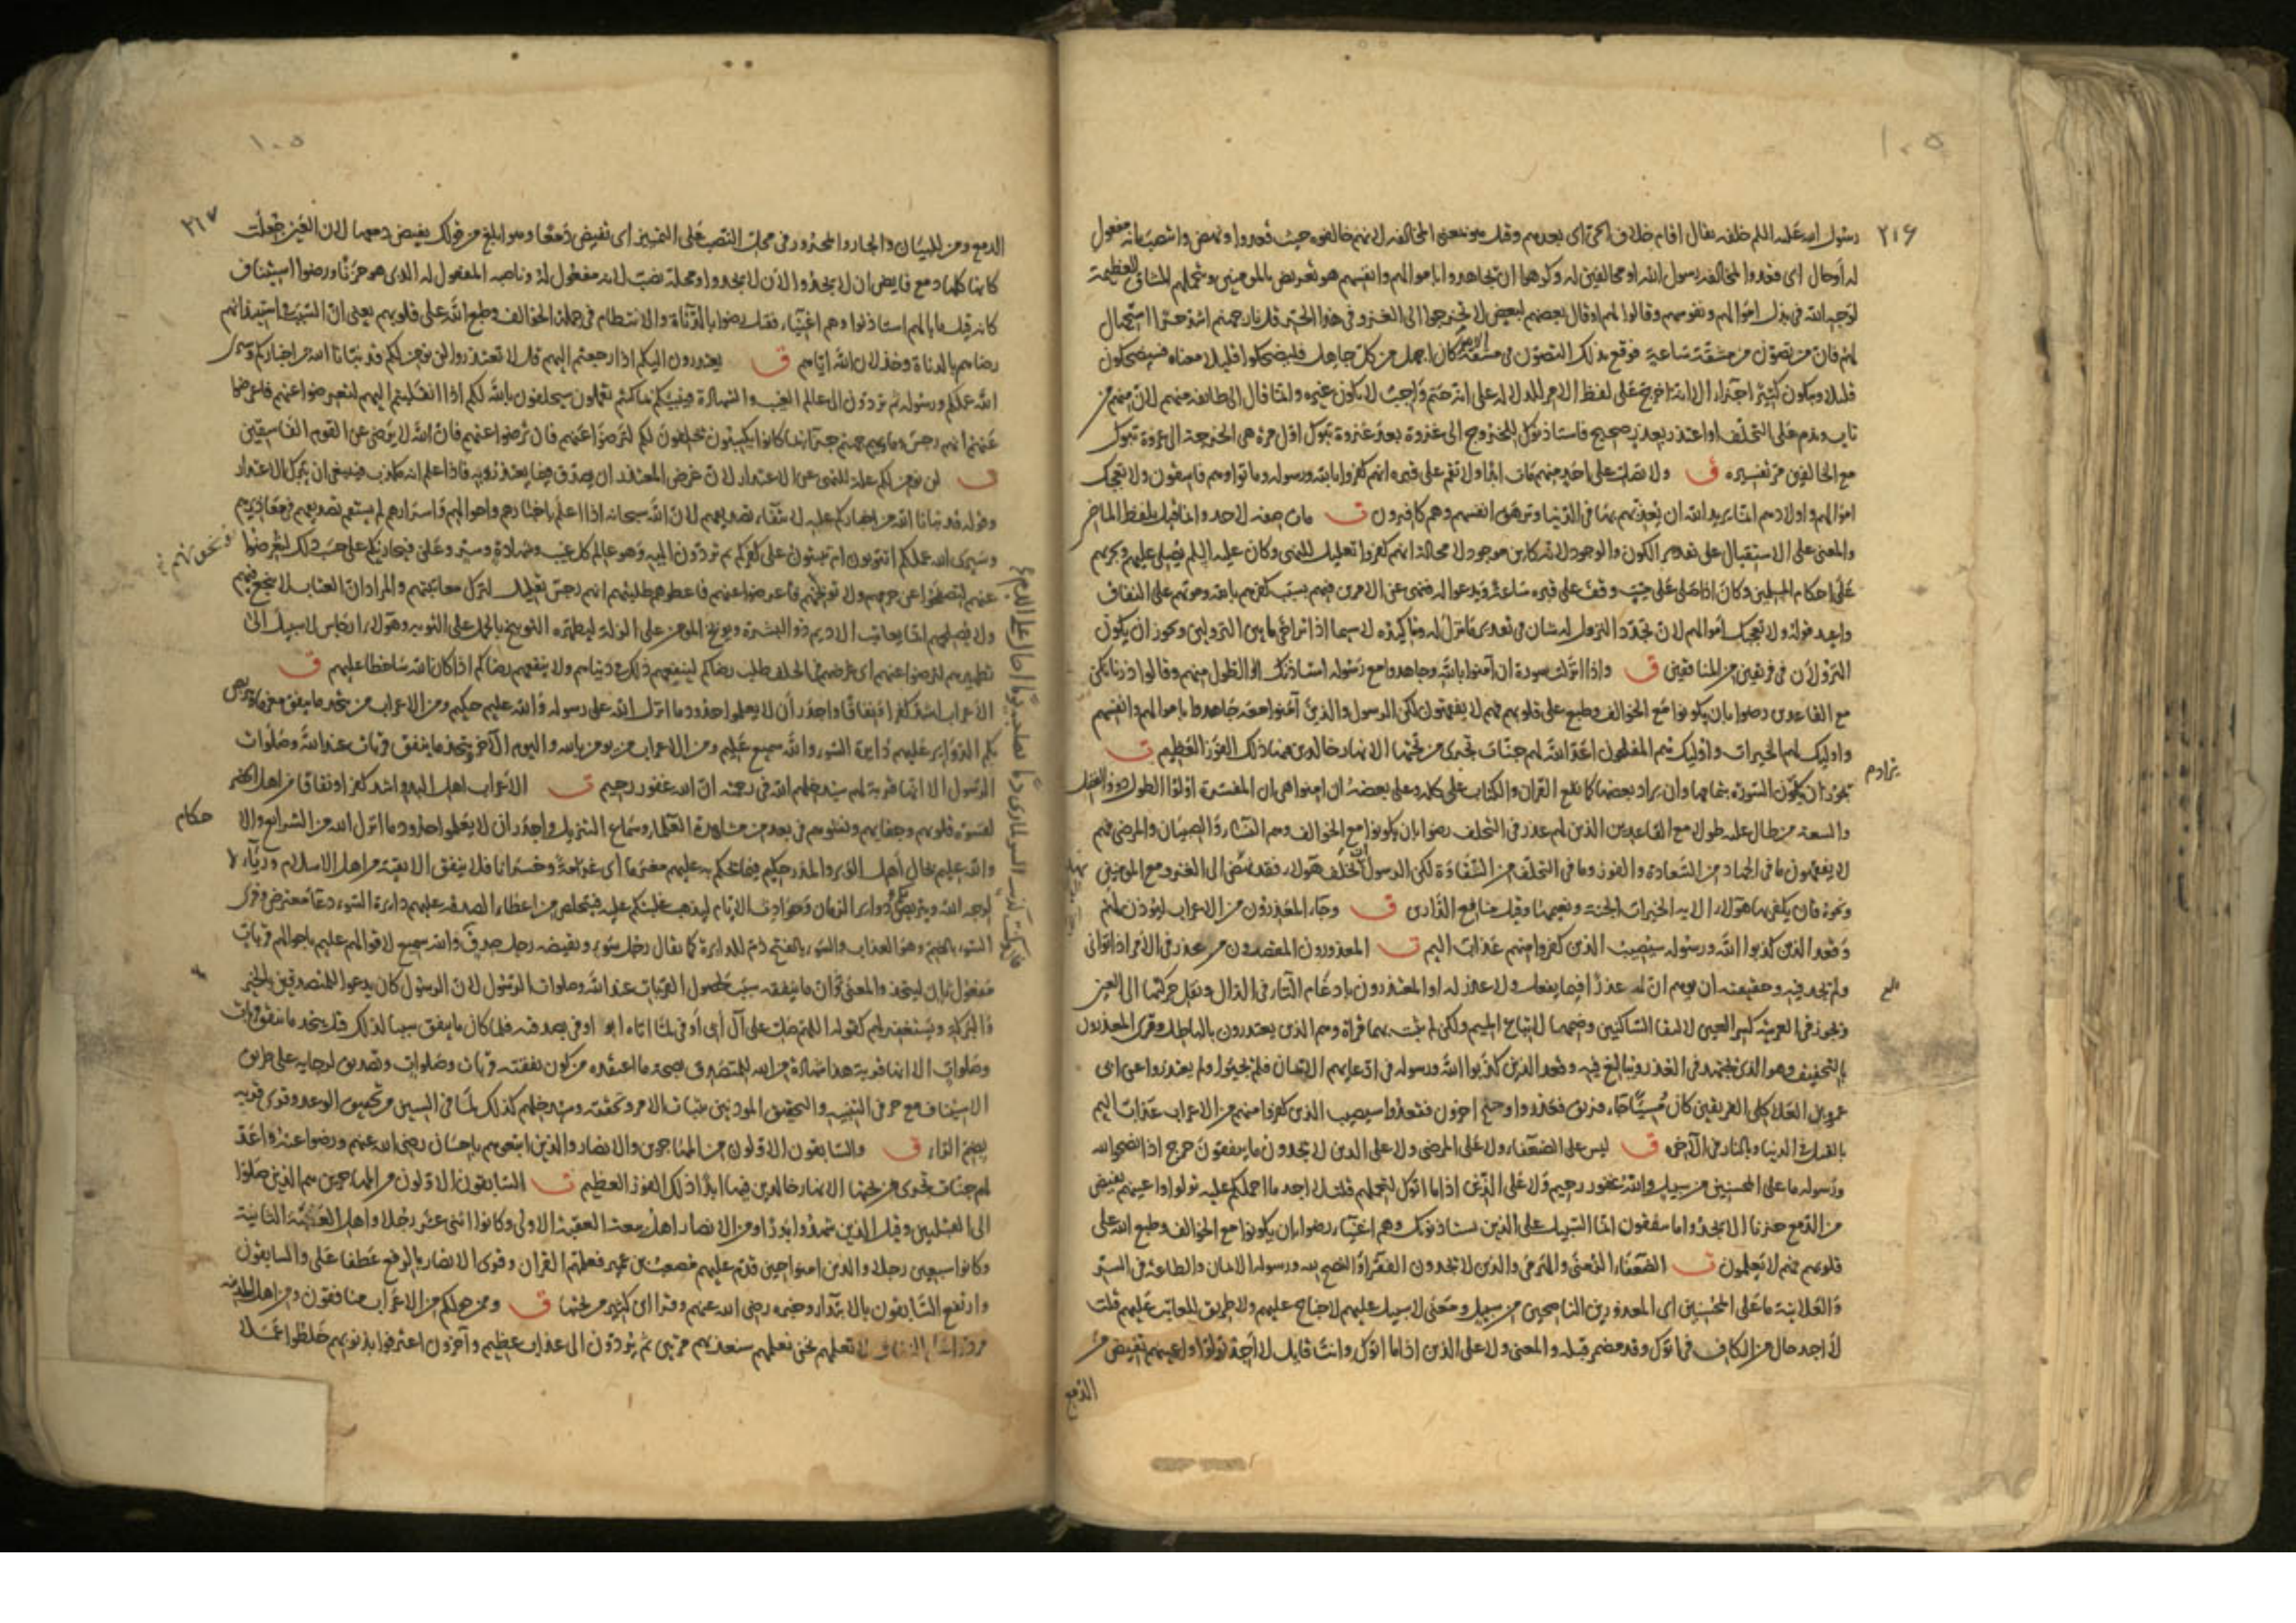 ١٠٥
٢١٦
رسول الله عليه السلم خلفه يقال اقام خلاف الحى اى بعدهم وقيل هو بمعنى المخالفه لانهم خالفوه حيث قعدوا ونهض وانتصابه انه مفعول
له او حال اى قعدوا لمخالفه رسول الله او مخالفين له وكرهوا ان يجاهدوا باموالهم وانفسهم هو تعريض بالمومنين وبتحملهم المشاق العظيمة
لوجه الله فى بذل اموالهم ونفوسهم وقالوا لهم او قال بعضهم لبعض لا تخرجوا الى الغزو فى هذا الحر قل نار جهنم اشد حرا استجهال
لهم فان من تصون من مشقة ساعة فوقع بذلك التصون فى مشقة الابد كان اجهل من كل جاهل فليضحكوا قليلا معناه فسيضحكون
قليلا ويبكون كثيرا جزاء الا انه اخرج على لفظ الامر للدلاله على انه حتم واجب لا يكون غيره وانما قال الى طايفه منهم لان منهم من
تاب وندم على التخلف او اعتذر بعذر صحيح فاستاذنوك للخروج الى غزوة بعد غزوة تبوك اول مرة هى الخرجة الى غزوة تبوك
مع الخالفين مر تفسيره ق ولا تصل على احد منهم مات ابدا ولا تقم على قبره انهم كفروا بالله ورسوله وماتوا وهم فاسقون ولا تعجبك
اموالهم واولادهم انما يريد الله ان يعذبهم بها فى الدنيا وتزهق انفسهم وهم كافرون ت مات صفه لاحد وانما قيل بلفظ الماضى
والمعنى على الاستقبال على تقدير الكون والوجود لانه كاين موجود لا محالة انهم كفروا تعليل للنهى وكان عليه السلم يصلى عليهم ويجريهم
على احكام المسلمين وكان اذا صلى على ميت وقف على قبره ساعة ويدعو له فنهى عن الامرين فيهم بسبب كفرهم بالله وموتهم على النفاق
واعيد قوله ولا تعجبك اموالهم لان تجدد النزول له شان فى تقدير ما نزل له وتاكيده لا سيما اذا تراخى ما بين النزولين ويجوز ان يكون
النزولان فى فريقين من المنافقين ق واذا انزلت سورة ان آمنوا بالله وجاهدوا مع رسوله استاذنك اولوا الطول منهم وقالوا ذرنا نكن
مع القاعدين رضوا بان يكونوا مع الخوالف وطبع على قلوبهم فهم لا يفقهون لكن الرسول والذين آمنوا معه جاهدوا باموالهم وانفسهم
واوليك لهم الخيرات واوليك هم المفلحون اعد الله لهم جنات تجرى من تحتها الانهار خالدين فيها ذلك الفوز العظيم ت
يجوز ان تكون السورة بتمامها وان يراد بعضها كما يقع القران والكتاب على كله وعلى بعضه ان امنوا هى ان المفسرة اولوا الطول ذوو الفضل
والسعة من طال عليه طولا مع القاعدين الذين لهم عذر فى التخلف رضوا بان يكونوا مع الخوالف وهم النساء والصبيان والمرضى فهم
لا يفقهون ما فى الجهاد من السعادة والفوز وما فى التخلف من الشقاوة لكن الرسول ان تخلف هولاء فقد نهض الى الغزو مع المومنين
ونحوه فان يكفر بها هولاء الايه الخيرات الجنة ونعيمها وقيل منافع الدارين ق وجاء المعذرون من الاعراب ليوذن لهم
وقعد الذين كذبوا الله ورسوله سيصيب الذين كفروا منهم عذاب اليم ت المعذرون المقصرون من عذر فى الامر اذا توانى
ولم يجد فيه وحقيقته ان يوهم ان له عذرا فيما يفعل ولا عذر له او المعتذرون بادغام التاء فى الذال ونقل حركتها الى العين
ويجوز فى العربية كسر العين لالتقا الساكنين وضمها لاتباع الميم ولكن لم يثبت بهما قراة وهم الذين يعتذرون بالباطل وقرى المعذرون
بالتخفيف وهو الذى يجتهد فى العذر ويبالغ فيه وقعد الذين كذبوا الله ورسوله فى ادعايهم الايمان فلم يجيئوا ولم يعتذروا عن ابى
عمرو بن العلا كلى الفريقين كان مسيئا جاء فريق فعذروا وجنح اخرون فقعدوا سيصيب الذين كفروا منهم من الاعراب عذاب اليم
بالقتل فى الدنيا وبالنار فى الآخره ق ليس على الضعفاء ولا على المرضى ولا على الذين لا يجدون ما ينفقون حرج اذا نصحوا لله
ورسوله ما على المحسنين من سبيل والله غفور رحيم ولا على الذين اذا ما اتوك لتحملهم قلت لا اجد ما احملكم عليه تولوا واعينهم تفيض
من الدمع حزنا الا يجدوا ما ينفقون انما السبيل على الذين يستاذنونك وهم اغنياء رضوا بان يكونوا مع الخوالف وطبع الله على
قلوبهم فهم لا يعلمون ت الضعفاء الزمنى والهرمى والذين لا يجدون الفقراء والنصح لله ورسوله الايمان والطاعة فى السر
والعلانية ما على المحسنين اى المعذورين الناصحين من سبيل ومعنى لا سبيل عليهم لا جناح عليهم ولا طريق للعاتب عليهم قلت
لا اجد حال من الكاف فى اتوك وقد مضمر قبله والمعنى ولا على الذين اذا ما اتوك وانت قايل لا اجد تولوا واعينهم تفيض من
الدمع
١٠٥
٢١٧
الدمع ومن للبيان والجار والمجرور فى محل النصب على التمييز اى تفيض دمعا وهو ابلغ من قولك يفيض دمعها لان العين جعلت
كانها كلها دمع فايض ان لا يجدوا لان لا يجدوا ومحله نصب لانه مفعول له وناصبه المفعول له الذى هو حزنا ورضوا استيناف
كانه قيل ما بالهم استاذنوا وهم اغنياء فقيل رضوا بالدناة والانتظام فى جملة الخوالف وطبع الله على قلوبهم يعنى ان السبب فى استيذانهم
رضاهم بالدناة وخذلان الله اياهم ق يعتذرون اليكم اذا رجعتم اليهم قل لا تعتذروا لن نومن لكم قد نبانا الله من اخباركم وسيرى
الله عملكم ورسوله ثم تردون الى عالم الغيب والشهادة فينبئكم بما كنتم تعملون سيحلفون بالله لكم اذا انقلبتم اليهم لتعرضوا عنهم فاعرضوا
عنهم انهم رجس وماويهم جهنم جزاء بما كانوا يكسبون يحلفون لكم لترضوا عنهم فان ترضوا عنهم فان الله لا يرضى عن القوم الفاسقين
ت لن نومن لكم علة للنهى عن الاعتذار لان غرض المعتذر ان يصدق فيما يعتذر به فاذا علم انه مكذب فينبغى ان يترك الاعتذار
وقوله قد نبانا الله من اخباركم علة لانتفاء تصديقهم لان الله سبحانه اذا اعلم باخبارهم واحوالهم واسرارهم لم يستقم تصديقهم فى معاذيرهم
وسيرى الله عملكم اتتوبون ام تثبتون على كفركم ثم تردون اليه وهو عالم كل غيب وشهادة وسر وعلن فيجازيكم على حسب ذلك لتعرضوا
عنهم لتصفحوا عن جرمهم ولا توبخوهم فاعرضوا عنهم فاعطوهم طلبتهم انهم رجس تعليل لترك معاتبتهم والمراد ان العتاب لا ينجع فيهم
ولا يصلحهم انما يعاتب الاديم ذو البشرة ويوبخ المومن على الزلة ليطهره التوبيخ بالحمل على التوبه وهولاء ارجاس لا سبيل الى
تطهيرهم لترضوا عنهم اى غرضهم فى الحلف طلب رضاكم لينفعهم ذلك فى دنياهم ولا ينفعهم رضاكم اذا كان الله ساخطا عليهم ق
الاعراب اشد كفرا ونفاقا واجدر ان لا يعلموا حدود ما انزل الله على رسوله والله عليم حكيم ومن الاعراب من يتخذ ما ينفق مغرما ويتربص
بكم الدواير عليهم دايرة السوء والله سميع عليم ومن الاعراب من يومن بالله واليوم الآخر ويتخذ ما ينفق قربات عند الله وصلوات
الرسول الا انها قربة لهم سيدخلهم الله فى رحمته ان الله غفور رحيم ت الاعراب اهل البدو اشد كفرا ونفاقا من اهل الحضر
لقسوة قلوبهم وجفايهم ونشوهم فى بعد من مشاهدة العلماء وسماع التنزيل واجدر ان لا يعلموا حدود ما انزل الله من الشرايع والا
حكام
والله عليم بحال اهل الوبر والمدر حكيم فيما يحكم به عليهم مغرما اى غرامة وخسرانا فلا ينفق الا تقية من اهل الاسلام ورياء لا
لوجه الله ويتربص بكم دواير الزمان وحوادث الايام ليذهب غلبتكم عليه فيتخلص من اعطاء الصدقه عليهم دايرة السوء دعاء معترض وقرى
السوء بالضم وهو العذاب والسوء بالفتح ذم للدايرة كما يقال رجل سوء ونقيضه رجل صدق والله سميع لاقوالهم عليم باحوالهم قربات
مفعول ثان ليتخذ والمعنى ان ما ينفقه سبب لحصول القربات عند الله وصلوات الرسول لان الرسول كان يدعو للمتصدقين بالخير
والبركه ويستغفر لهم كقوله اللهم صل على آل ابى اوفى لما اتاه ابو اوفى بصدقته فلما كان ما ينفق سببا لذلك قيل يتخذ ما ينفق قربات
وصلوات الا انها قربة هذا شهادة من الله للمتصدق بصحة ما اعتقده من كون نفقته قربات وصلوات وتصديق لرجايه على طريق
الاستيناف مع حرفى التنبيه والتحقيق الموذنين بثبات الامر وتحققه وسيدخلهم كذلك لما فى السين من تحقيق الوعد وقرى قربه
بضم الراء ق والسابقون الاولون من المهاجرين والانصار والذين اتبعوهم باحسان رضى الله عنهم ورضوا عنه واعد
لهم جنات تجرى من تحتها الانهار خالدين فيها ابدا ذلك الفوز العظيم ت السابقون الاولون من المهاجرين هم الذين صلوا
الى القبلتين وقيل الذين شهدوا بدرا ومن الانصار اهل بيعة العقبة الاولى وكانوا اثنى عشر رجلا واهل العقبة الثانية
وكانوا سبعين رجلا والذين امنوا حين قدم عليهم مصعب بن عمير فعلمهم القران وقرى الانصار بالرفع عطفا على والسابقون
وارتفع السابقون بالابتداء وخبره رضى الله عنهم وقرا ابن كثير من تحتها ق وممن حولكم من الاعراب منافقون ومن اهل المدينه
مردوا على النفاق لا تعلمهم نحن نعلمهم سنعذبهم مرتين ثم يردون الى عذاب عظيم وآخرون اعترفوا بذنوبهم خلطوا عملا